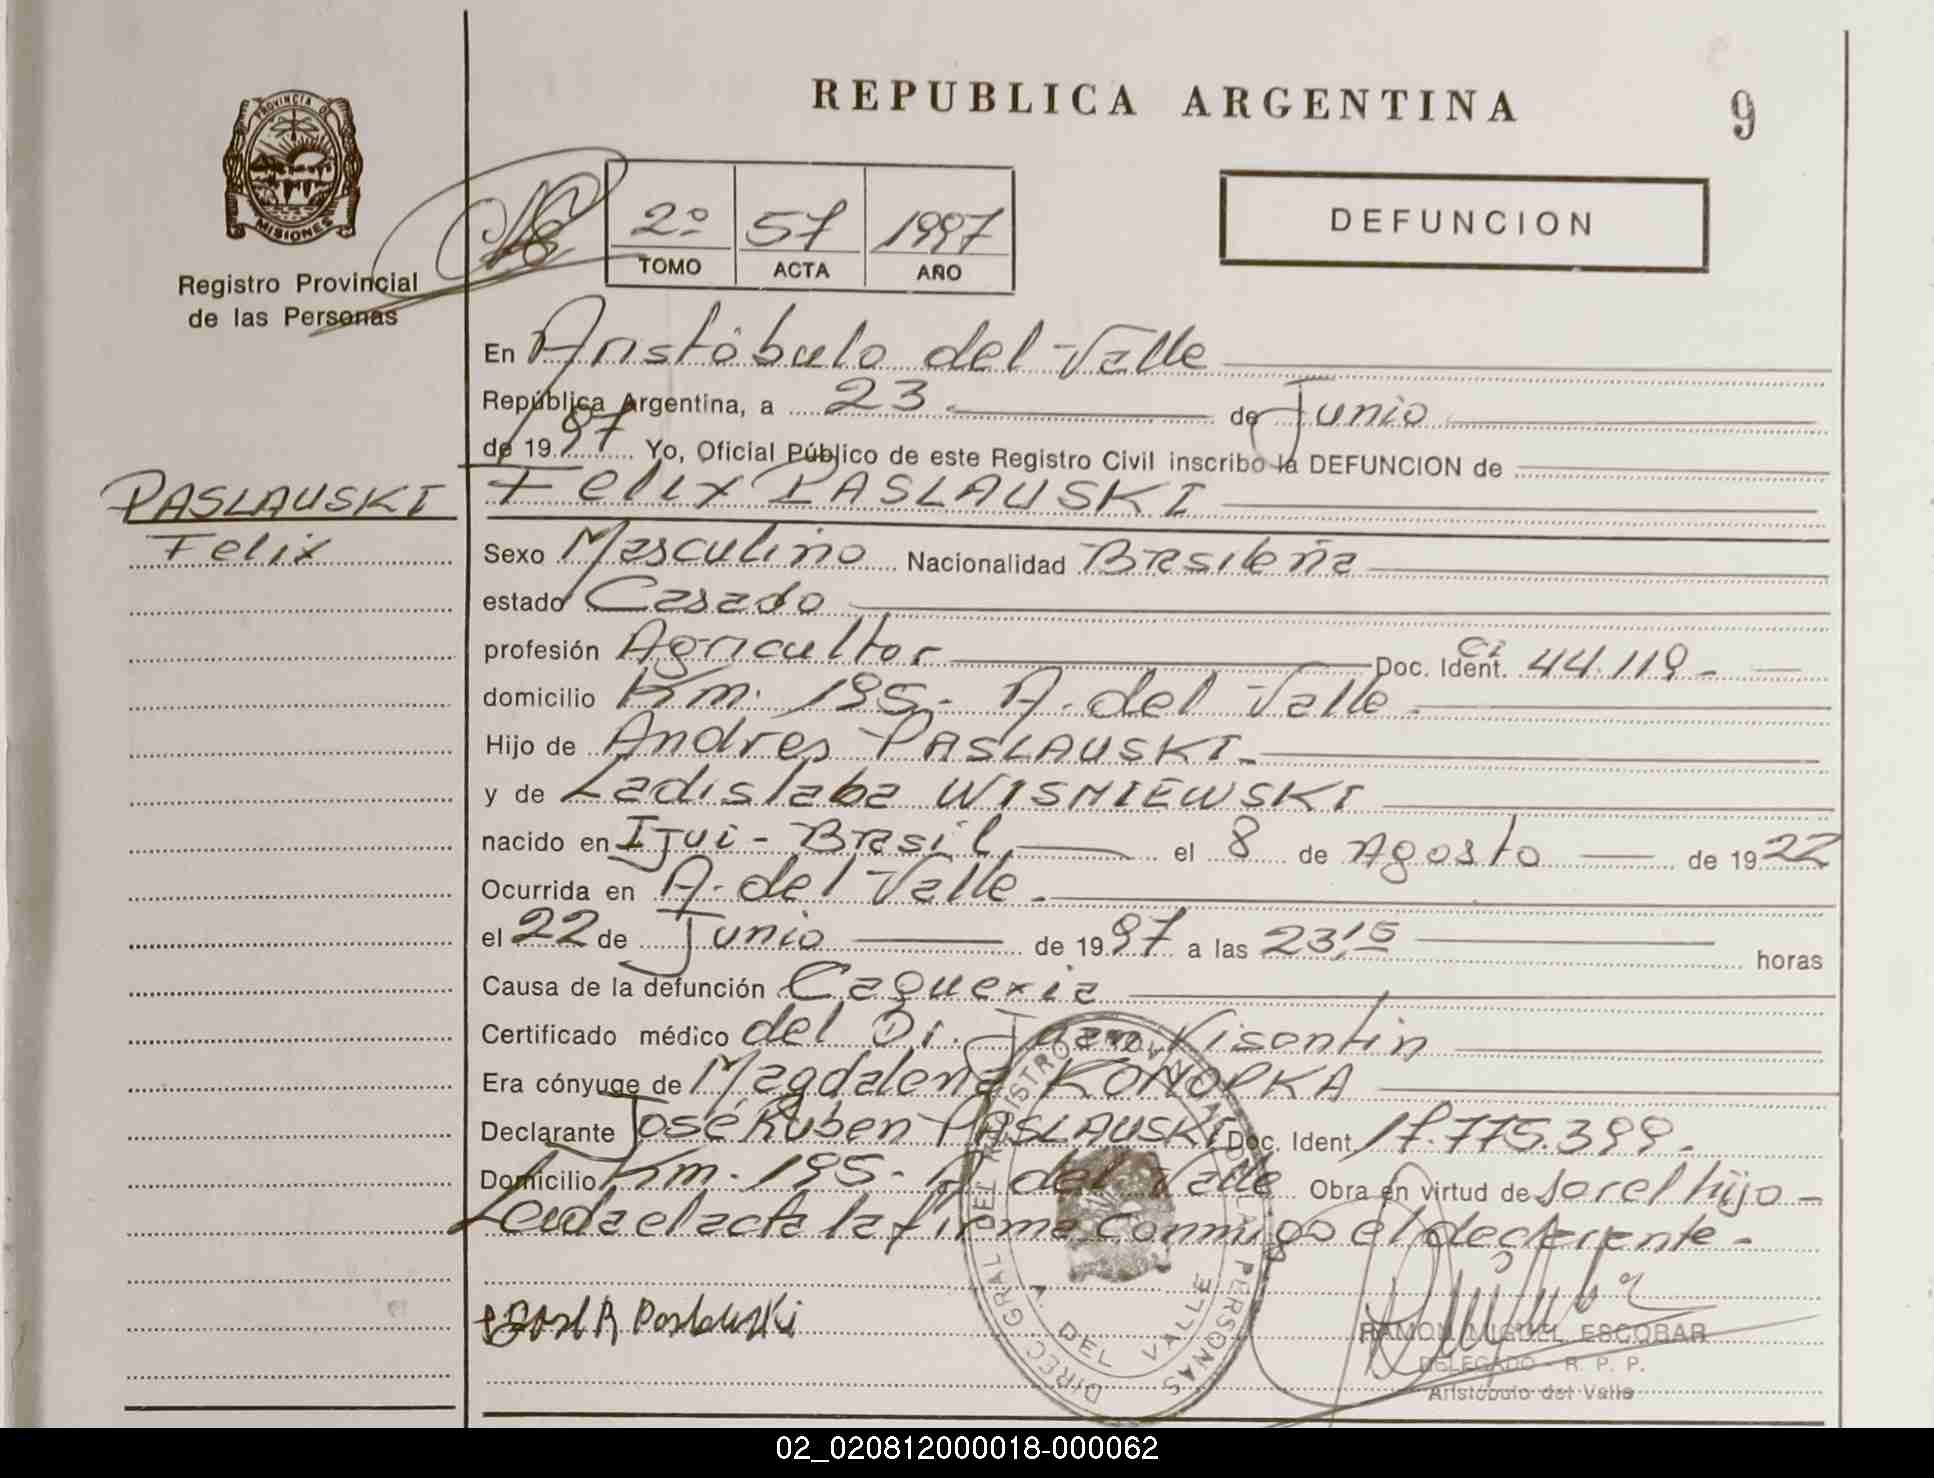 REPUBLICA ARGENTINA
9
PROVINCIA DE
MISIONES
Registro Provincial
de las Personas
2º 57 1997
TOMO ACTA AÑO
DEFUNCION
En Aristóbulo del Valle
República Argentina, a 23 de Junio
de 1997 Yo, Oficial Público de este Registro Civil inscribo la DEFUNCION de
PASLAUSKI
Felix
Felix PASLAUSKI
Sexo Masculino Nacionalidad Brasileña
estado Casado
profesión Agricultor Doc. Ident. CI 44.119-
domicilio Km. 195- A. del Valle-
Hijo de Andres PASLAUSKI-
y de Ladislaba WISNIEWSKI
nacido en Ijui - Brasil el 8 de Agosto de 1922
Ocurrida en A. del Valle-
el 22 de Junio de 1997 a las 23,15 horas
Causa de la defunción Caquexia
Certificado médico del Dr. Juan Visentin
Era cónyuge de Magdalena KONOPKA
Declarante José Ruben PASLAUSKI Doc. Ident. 17.775.399-
Domicilio Km. 195- A. del Valle Obra en virtud de ser el hijo-
Leida el acta la firma conmigo el declarante-
José R Paslauski
DIREC. GRAL DEL REGISTRO PROVINCIAL DE LAS PERSONAS
A. DEL VALLE
RAMON MIGUEL ESCOBAR
DELEGADO - R. P. P.
Aristóbulo del Valle
02_020812000018-000062